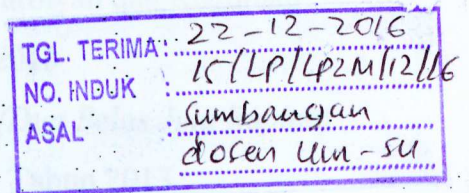 TGL. TERIMA: 22-12-2016
NO. INDUK : 15/LP/LP2M/12/16
ASAL : Sumbangan
dosen UIN-SU